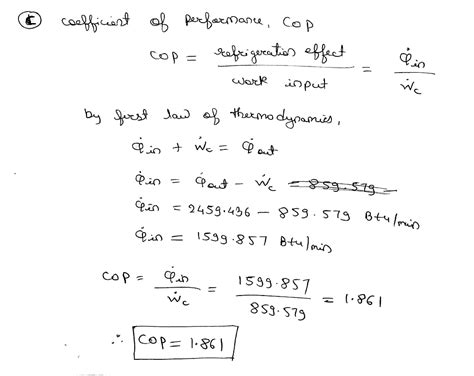 (C) coefficient of performance, COP
COP = refrigeration effect / work input = Q̇in / Ẇc
by first law of thermodynamics,
Q̇in + Ẇc = Q̇out
Q̇in = Q̇out - Ẇc = 859.579
Q̇in = 2459.436 - 859.579 Btu/min
Q̇in = 1599.857 Btu/min
COP = Q̇in / Ẇc = 1599.857 / 859.579 = 1.861
∴ COP = 1.861